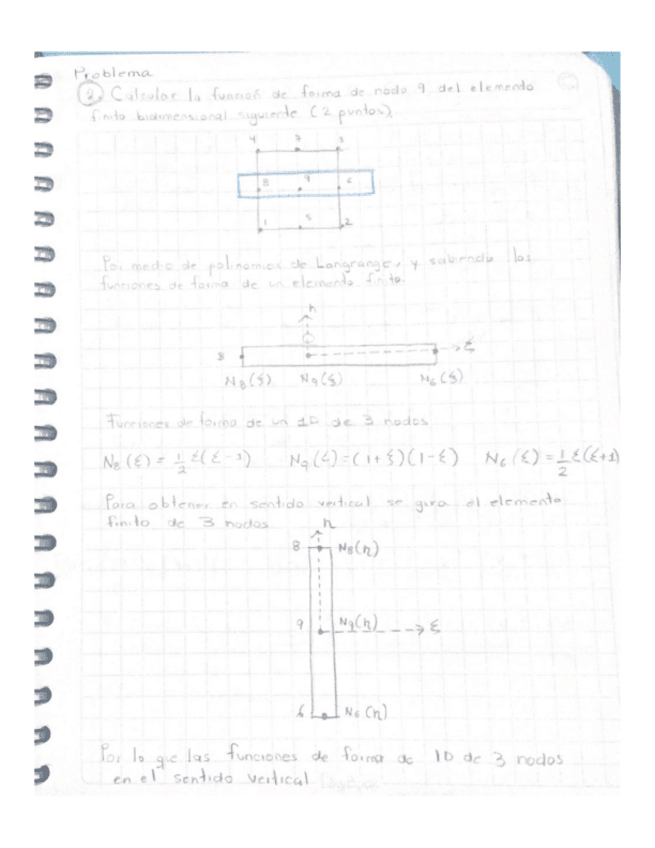 Problema
2. Calcular la función de forma de nodo 9 del elemento
finito bidimensional siguiente (2 puntos).
4 7 3
8 9 6
1 5 2
Por medio de polinomios de Langrange, y sabiendo las
funciones de forma de un elemento finito.
η
8 ξ
N8(ξ) N9(ξ) N6(ξ)
Funciones de forma de un 1D de 3 nodos
N8(ξ) = 1/2 ξ(ξ-1) N9(ξ) = (1+ξ)(1-ξ) N6(ξ) = 1/2 ξ(ξ+1)
Para obtener en sentido vertical se gira el elemento
finito de 3 nodos
η
8 N8(η)
9 N9(η) ξ
6 N6(η)
Por lo que las funciones de forma de 1D de 3 nodos
en el sentido vertical